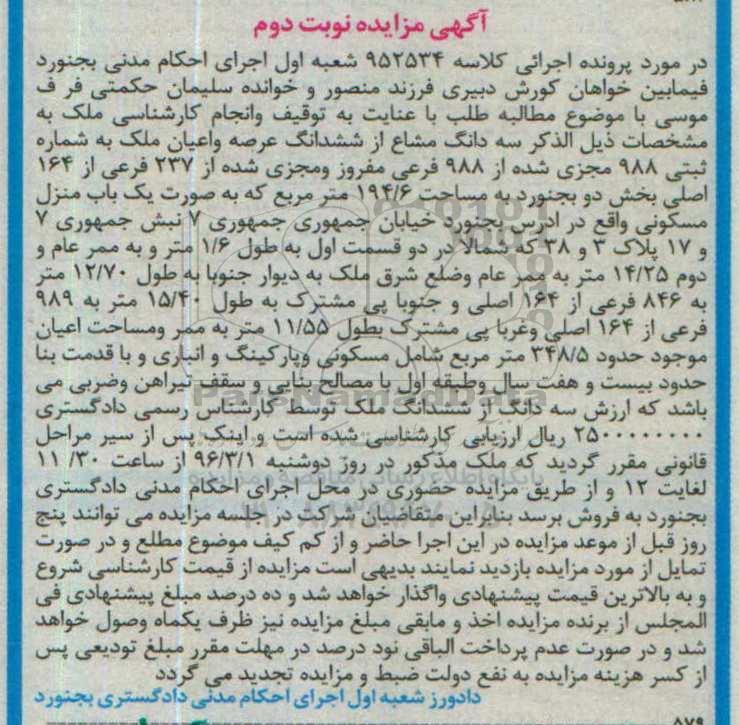 آگهی مزایده نوبت دوم
در مورد پرونده اجرائی کلاسه ۹۵۲۵۳۴ شعبه اول اجرای احکام مدنی بجنورد
فیمابین خواهان کورش دبیری فرزند منصور و خوانده سلیمان حکمتی فر ف
موسی با موضوع مطالبه طلب با عنایت به توقیف وانجام کارشناسی ملک به
مشخصات ذیل الذکر سه دانگ مشاع از ششدانگ عرصه واعیان ملک به شماره
ثبتی ۹۸۸ مجزی شده از ۹۸۸ فرعی مفروز ومجزی شده از ۲۳۷ فرعی از ۱۶۴
اصلی بخش دو بجنورد به مساحت ۱۹۴/۶ متر مربع که به صورت یک باب منزل
مسکونی واقع در ادرس بجنورد خیابان جمهوری جمهوری ۷ نبش جمهوری ۷
و ۱۷ پلاک ۳ و ۳۸ که شمالا در دو قسمت اول به طول ۱/۶ متر و به ممر عام و
دوم ۱۴/۲۵ متر به ممر عام وضلع شرق ملک به دیوار جنوبا به طول ۱۲/۷۰ متر
به ۸۴۶ فرعی از ۱۶۴ اصلی و جنوبا پی مشترک به طول ۱۵/۴۰ متر به ۹۸۹
فرعی از ۱۶۴ اصلی وغربا پی مشترک بطول ۱۱/۵۵ متر به ممر ومساحت اعیان
موجود حدود ۳۴۸/۵ متر مربع شامل مسکونی وپارکینگ و انباری و با قدمت بنا
حدود بیست و هفت سال وطبقه اول با مصالح بنایی و سقف تیراهن وضربی می
باشد که ارزش سه دانگ از ششدانگ ملک توسط کارشناس رسمی دادگستری
۲۵۰۰۰۰۰۰۰۰ ریال ارزیابی کارشناسی شده است و اینک پس از سیر مراحل
قانونی مقرر گردید که ملک مذکور در روز دوشنبه ۹۶/۳/۱ از ساعت ۳۰/ ۱۱
لغایت ۱۲ و از طریق مزایده حضوری در محل اجرای احکام مدنی دادگستری
بجنورد به فروش برسد بنابراین متقاضیان شرکت در جلسه مزایده می توانند پنج
روز قبل از موعد مزایده در این اجرا حاضر و از کم کیف موضوع مطلع و در صورت
تمایل از مورد مزایده بازدید نمایند بدیهی است مزایده از قیمت کارشناسی شروع
و به بالاترین قیمت پیشنهادی واگذار خواهد شد و ده درصد مبلغ پیشنهادی فی
المجلس از برنده مزایده اخذ و مابقی مبلغ مزایده نیز ظرف یکماه وصول خواهد
شد و در صورت عدم پرداخت الباقی نود درصد در مهلت مقرر مبلغ تودیعی پس
از کسر هزینه مزایده به نفع دولت ضبط و مزایده تجدید می گردد
دادورز شعبه اول اجرای احکام مدنی دادگستری بجنورد
۸۷۹
ParsNamadData